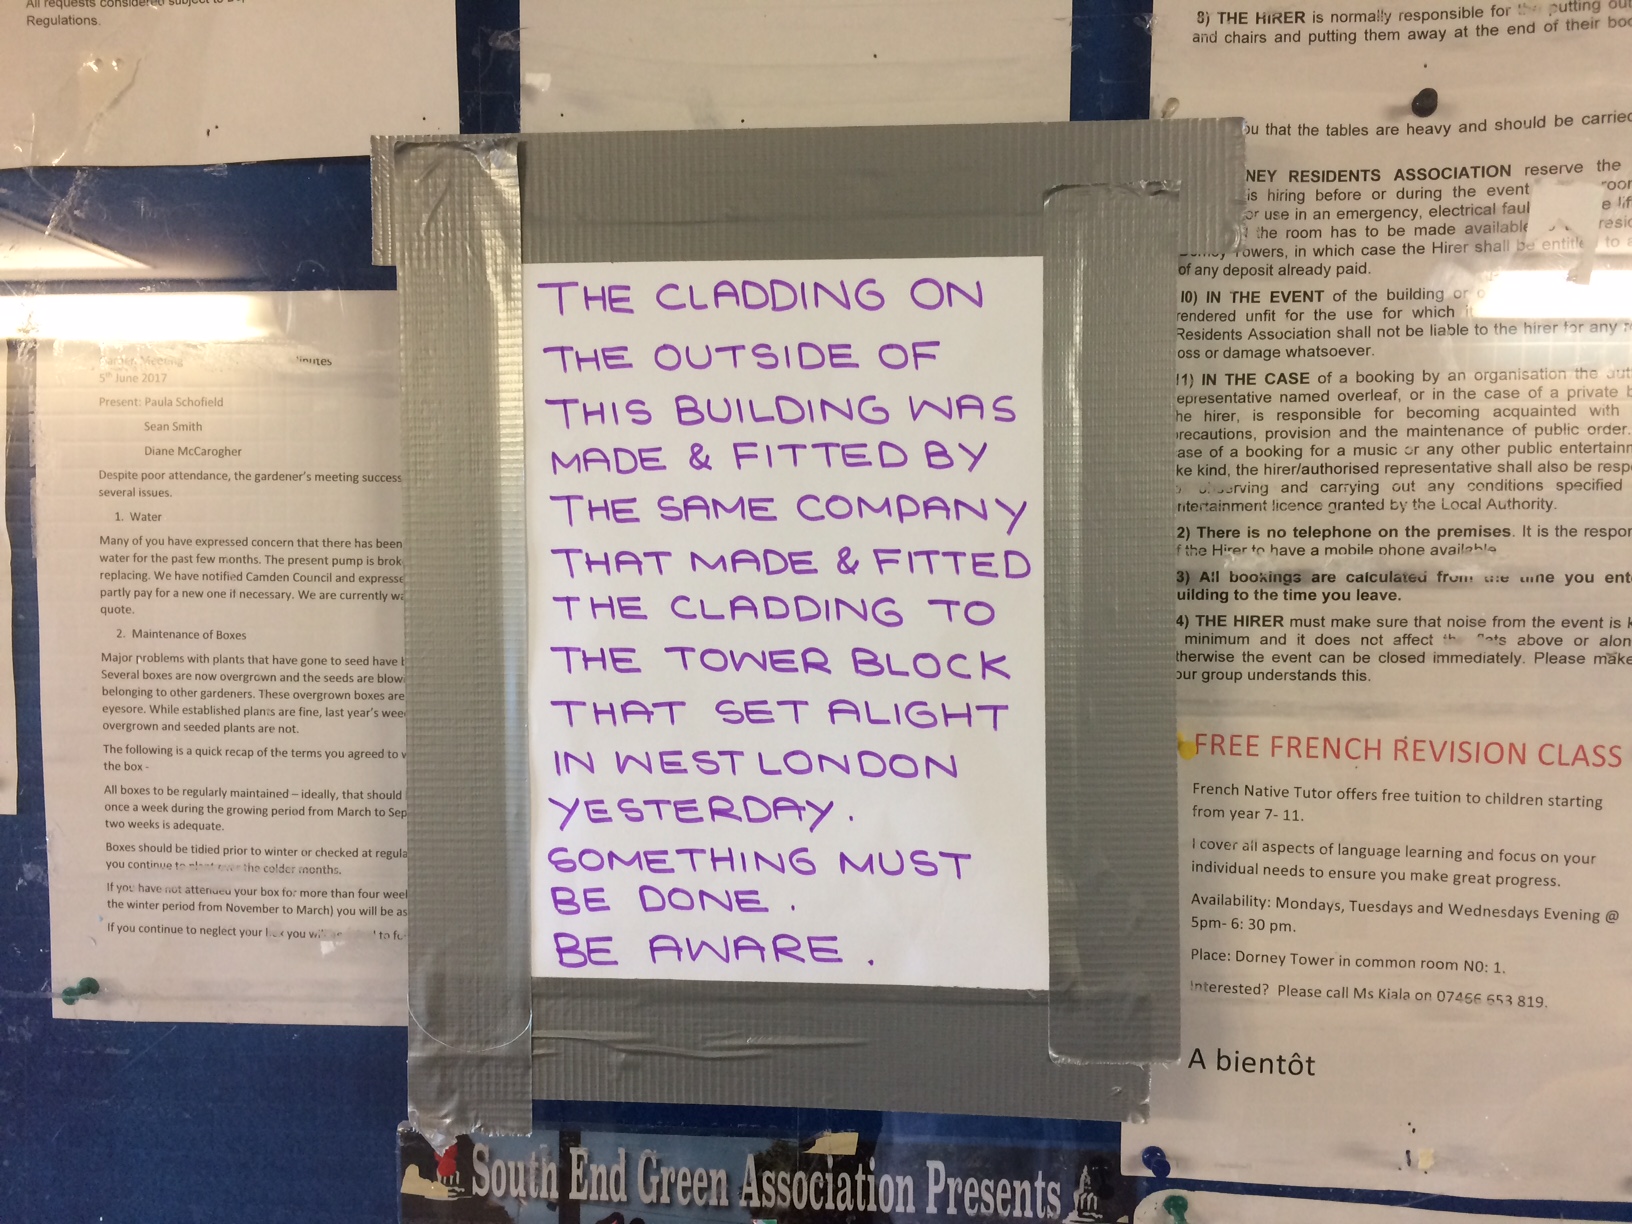 All requests considered subject to
Regulations.
8) THE HIRER is normally responsible for the putting out
and chairs and putting them away at the end of their
ou that the tables are heavy and should be carried
NEY RESIDENTS ASSOCIATION reserve the
is hiring before or during the event
or use in an emergency, electrical
the room has to be made available
Towers, in which case the Hirer shall be entitled to
of any deposit already paid.
10) IN THE EVENT of the building or
rendered unfit for the use for which
Residents Association shall not be liable to the hirer for any
oss or damage whatsoever.
11) IN THE CASE of a booking by an organisation the
epresentative named overleaf, or in the case of a private
he hirer, is responsible for becoming acquainted with
precautions, provision and the maintenance of public order.
ase of a booking for a music or any other public entertainm
ke kind, the hirer/authorised representative shall also be resp
observing and carrying out any conditions specified
ntertainment licence granted by the Local Authority.
2) There is no telephone on the premises. It is the respon
f the Hirer to have a mobile phone available
3) All bookings are calculated from the time you ente
uilding to the time you leave.
4) THE HIRER must make sure that noise from the event is k
minimum and it does not affect the flats above or alon
therwise the event can be closed immediately. Please make
our group understands this.
Minutes
5th June 2017
Present: Paula Schofield
Sean Smith
Diane McCarogher
Despite poor attendance, the gardener's meeting success
several issues.
1. Water
Many of you have expressed concern that there has been
water for the past few months. The present pump is brok
replacing. We have notified Camden Council and expresse
partly pay for a new one if necessary. We are currently wa
quote.
2. Maintenance of Boxes
Major problems with plants that have gone to seed have b
Several boxes are now overgrown and the seeds are blow
belonging to other gardeners. These overgrown boxes are
eyesore. While established plants are fine, last year's wee
overgrown and seeded plants are not.
The following is a quick recap of the terms you agreed to w
the box -
All boxes to be regularly maintained – ideally, that should
once a week during the growing period from March to Sep
two weeks is adequate.
Boxes should be tidied prior to winter or checked at regula
you continue to plant over the colder months.
If you have not attended your box for more than four week
the winter period from November to March) you will be as
If you continue to neglect your box you will to
THE CLADDING ON
THE OUTSIDE OF
THIS BUILDING WAS
MADE & FITTED BY
THE SAME COMPANY
THAT MADE & FITTED
THE CLADDING TO
THE TOWER BLOCK
THAT SET ALIGHT
IN WEST LONDON
YESTERDAY.
SOMETHING MUST
BE DONE.
BE AWARE.
FREE FRENCH REVISION CLASS
French Native Tutor offers free tuition to children starting
from year 7- 11.
I cover all aspects of language learning and focus on your
individual needs to ensure you make great progress.
Availability: Mondays, Tuesdays and Wednesdays Evening @
5pm- 6: 30 pm.
Place: Dorney Tower in common room N0: 1.
Interested? Please call Ms Kiala on 07466 653 819.
A bientôt
South End Green Association Presents